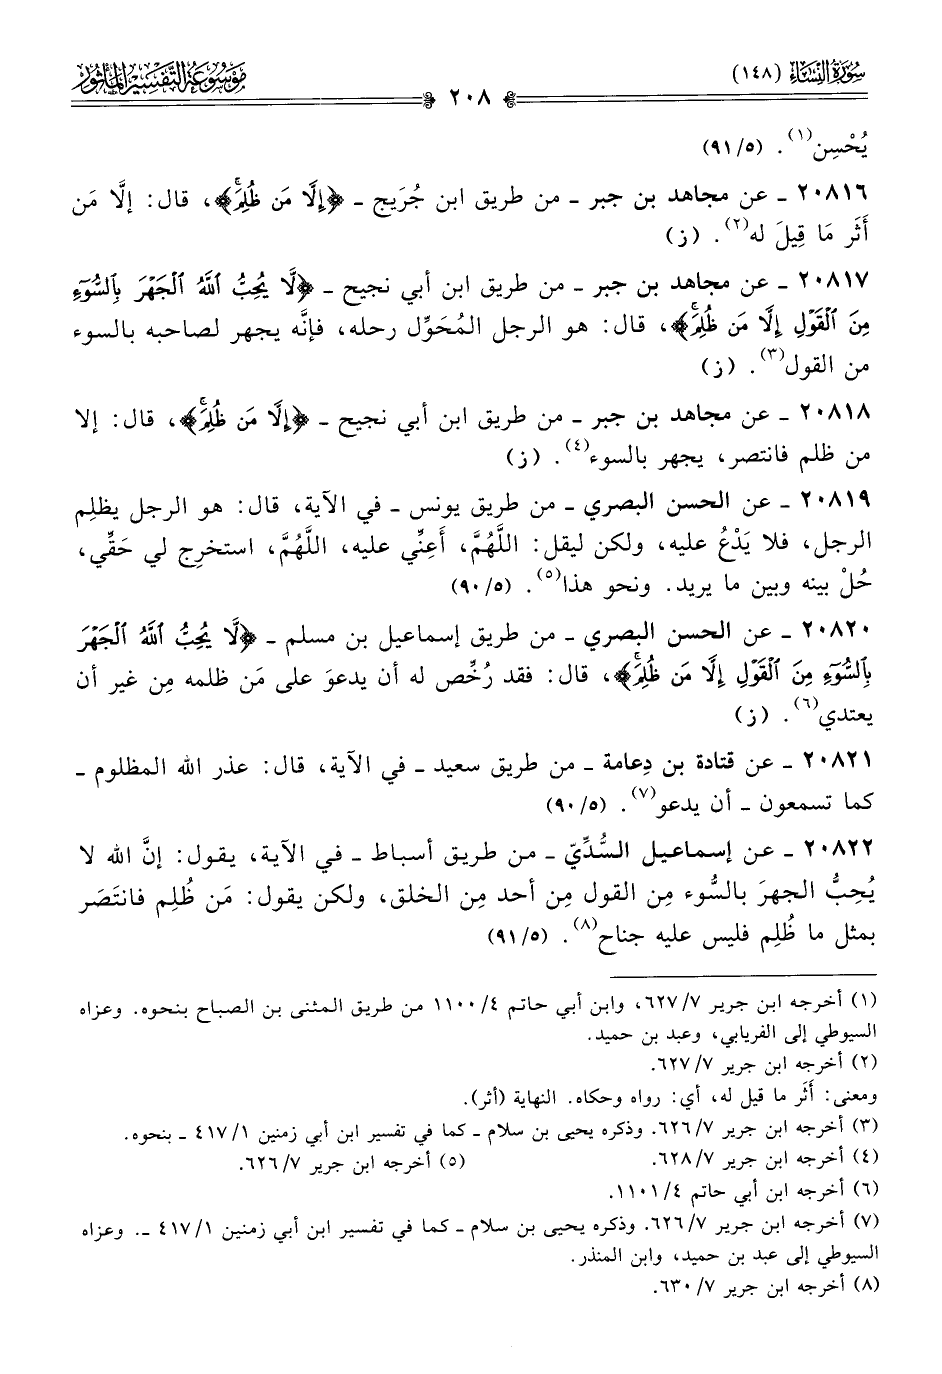 سُورَةُ النِّسَاءِ (١٤٨)
٢٠٨
مَوْسُوعَةُ التَّفْسِيرِ المَأْثُور
يُحْسِن(١). (٩١/٥)
٢٠٨١٦ ـ عن مجاهد بن جبر ـ من طريق ابن جُرَيج ـ ﴿إِلَّا مَن ظُلِمَۚ﴾، قال: إلَّا مَن
أَثَر مَا قِيلَ له(٢). (ز)
٢٠٨١٧ ـ عن مجاهد بن جبر ـ من طريق ابن أبي نجيح ـ ﴿لَّا يُحِبُّ ٱللَّهُ ٱلۡجَهۡرَ بِٱلسُّوٓءِ
مِنَ ٱلۡقَوۡلِ إِلَّا مَن ظُلِمَۚ﴾، قال: هو الرجل المُحَوِّل رحله، فإنَّه يجهر لصاحبه بالسوء
من القول(٣). (ز)
٢٠٨١٨ ـ عن مجاهد بن جبر ـ من طريق ابن أبي نجيح ـ ﴿إِلَّا مَن ظُلِمَۚ﴾، قال: إلا
من ظلم فانتصر، يجهر بالسوء(٤). (ز)
٢٠٨١٩ ـ عن الحسن البصري ـ من طريق يونس ـ في الآية، قال: هو الرجل يظلِم
الرجل، فلا يَدْعُ عليه، ولكن ليقل: اللَّهُمَّ، أَعِنِّي عليه، اللَّهُمَّ، استخرِج لي حَقِّي،
حُلْ بينه وبين ما يريد. ونحو هذا(٥). (٩٠/٥)
٢٠٨٢٠ ـ عن الحسن البصري ـ من طريق إسماعيل بن مسلم ـ ﴿لَّا يُحِبُّ ٱللَّهُ ٱلۡجَهۡرَ
بِٱلسُّوٓءِ مِنَ ٱلۡقَوۡلِ إِلَّا مَن ظُلِمَۚ﴾، قال: فقد رُخِّص له أن يدعوَ على مَن ظلمه مِن غير أن
يعتدي(٦). (ز)
٢٠٨٢١ ـ عن قتادة بن دِعامة ـ من طريق سعيد ـ في الآية، قال: عذر الله المظلوم ـ
كما تسمعون ـ أن يدعو(٧). (٩٠/٥)
٢٠٨٢٢ ـ عن إسماعيل السُّدِّيّ ـ من طريق أسباط ـ في الآية، يقول: إنَّ الله لا
يُحِبُّ الجهرَ بالسُّوء مِن القول مِن أحد مِن الخلق، ولكن يقول: مَن ظُلِم فانتَصَر
بمثل ما ظُلِم فليس عليه جناح(٨). (٩١/٥)
(١) أخرجه ابن جرير ٦٢٧/٧، وابن أبي حاتم ١١٠٠/٤ من طريق المثنى بن الصباح بنحوه. وعزاه
السيوطي إلى الفريابي، وعبد بن حميد.
(٢) أخرجه ابن جرير ٦٢٧/٧.
ومعنى: أَثَر ما قيل له، أي: رواه وحكاه. النهاية (أثر).
(٣) أخرجه ابن جرير ٦٢٦/٧. وذكره يحيى بن سلام ـ كما في تفسير ابن أبي زمنين ٤١٧/١ ـ بنحوه.
(٤) أخرجه ابن جرير ٦٢٨/٧. (٥) أخرجه ابن جرير ٦٢٦/٧.
(٦) أخرجه ابن أبي حاتم ١١٠١/٤.
(٧) أخرجه ابن جرير ٦٢٦/٧. وذكره يحيى بن سلام ـ كما في تفسير ابن أبي زمنين ٤١٧/١ ـ. وعزاه
السيوطي إلى عبد بن حميد، وابن المنذر.
(٨) أخرجه ابن جرير ٦٣٠/٧.